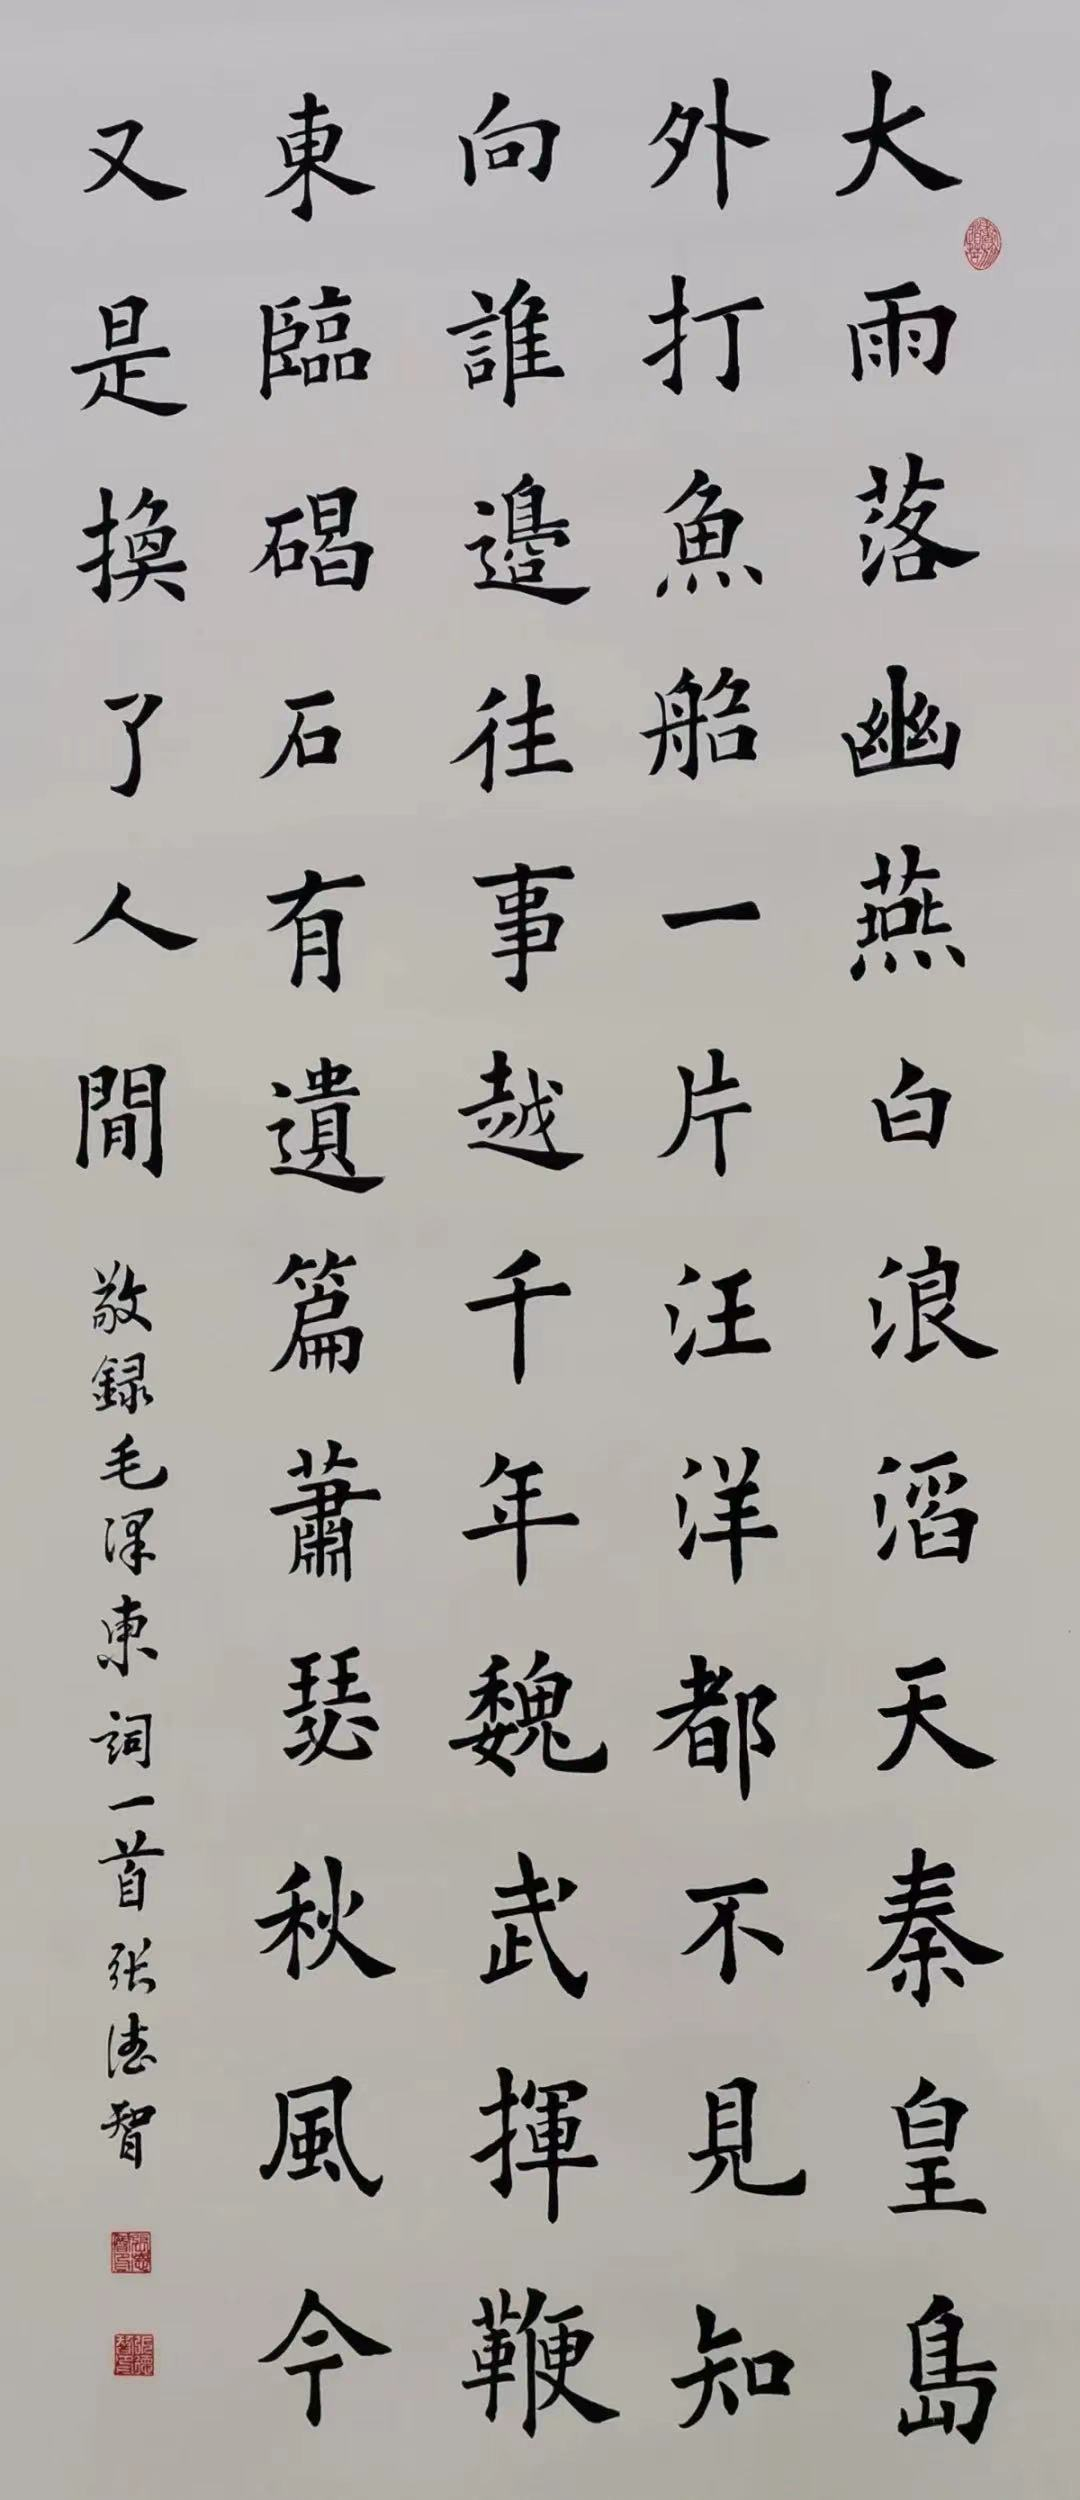 大雨落幽燕白浪滔天秦皇島
外打魚船一片汪洋都不見知
向誰邊往事越千年魏武揮鞭
東臨碣石有遺篇蕭瑟秋風今
又是換了人間
敬録毛澤東詞一首張德智